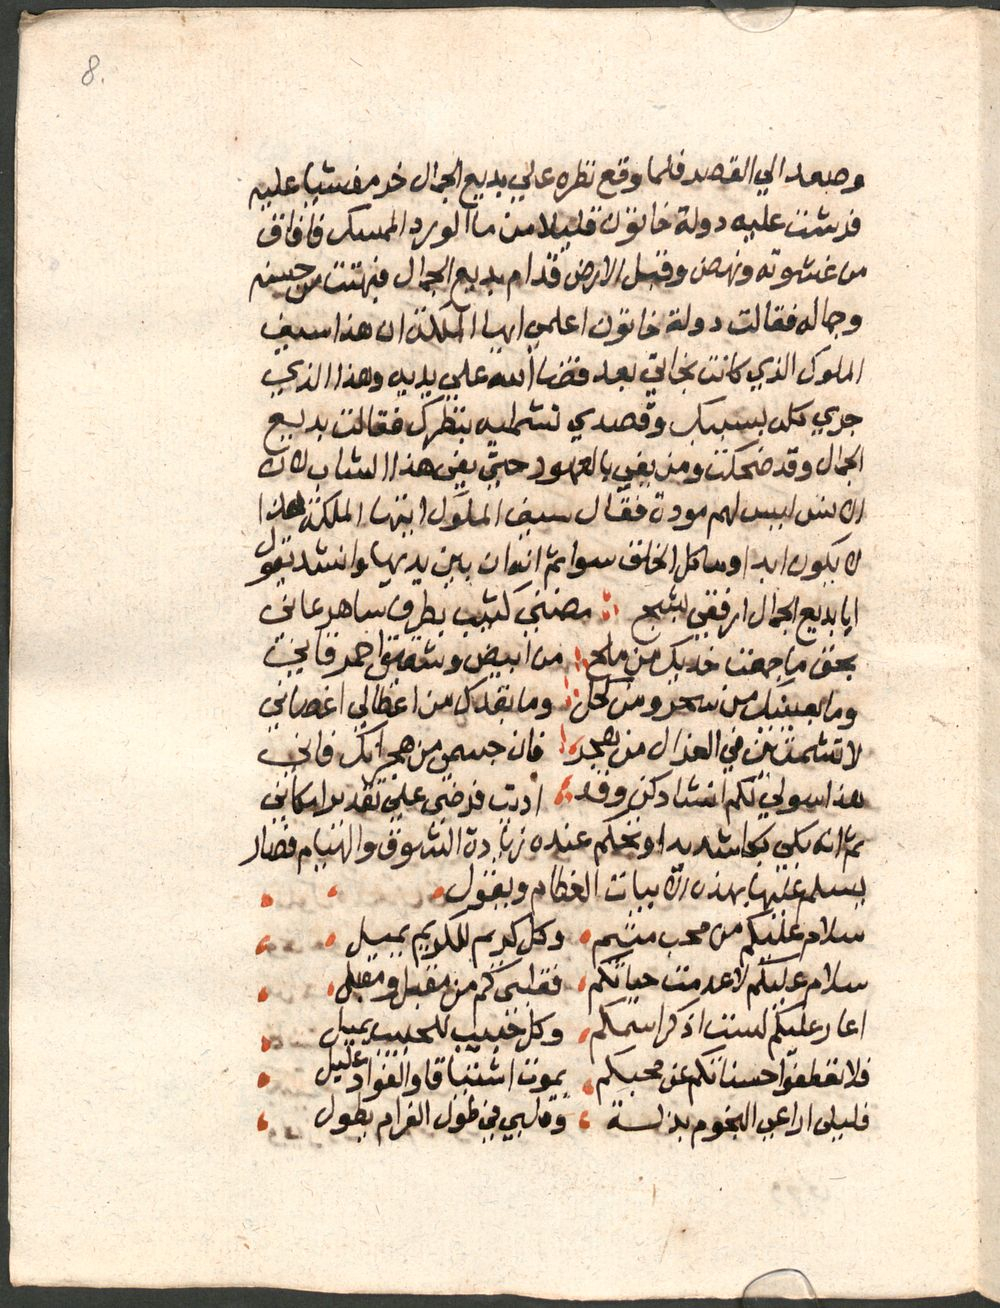 8.
وصعد الي القصر فلما وقع نظره علي بديع الجمال خر مغشيا عليه
فرشت عليه دولة خاتون قليلا من ما الورد الممسك فافاق
من غشوته ونهض وقبل الارض قدام بديع الجمال فبهتت من حسنه
وجماله فقالت دولة خاتون اعلمي ايها الملكة ان هذا سيف
الملوك الذي كانت نجاتي بعد قضا الله علي يديه وهذا الذي
جري كله بسببك وقصدي تشمليه بنظرك فقالت بديع
الجمال وقد ضحكت ومن يفي بالعهود حتي يفي هذا الشاب لان
الانس ليس لهم مودة فقال سيف الملوك ايتها الملكة هذا
لا يكون ابدا وما كل الخلق سوا ثم انه ان بين يديها وانشد يقول
ايا بديع الجمال ارفقي بشج مضني كئيب بطرف ساهر عاني
بحق ما جمعت خديك من ملح من ابيض وشقيق احمر قاني
وما بعينيك من سحر ومن كحل وما بقدك من اعطافي اغصاني
لا تشمتين في العذال من فان جسمي من هجرانك فاني
هذا سولي لكم انشادكن وقد ادت فرضي علي تقدير امكاني
ثم انه بكي بكا شديدا وتحكم عنده زيادة الشوق والهيام فصار
يسلم عليها بهذه الابيات العظام ويقول
سلام عليكم من محب متيم وكل كريم للكريم يميل
سلام عليكم لا عدمت حياتكم فقلبي لكم من مقبل ومقيل
اغار عليكم لست اذكر اسمكم وكل حبيب للحبيب يميل
فلا تقطعوا حسناتكم عن محبكم يموت اشتياقا والفواد عليل
فليلي اراعي النجوم بذلة وقلبي في طول الغرام يطول